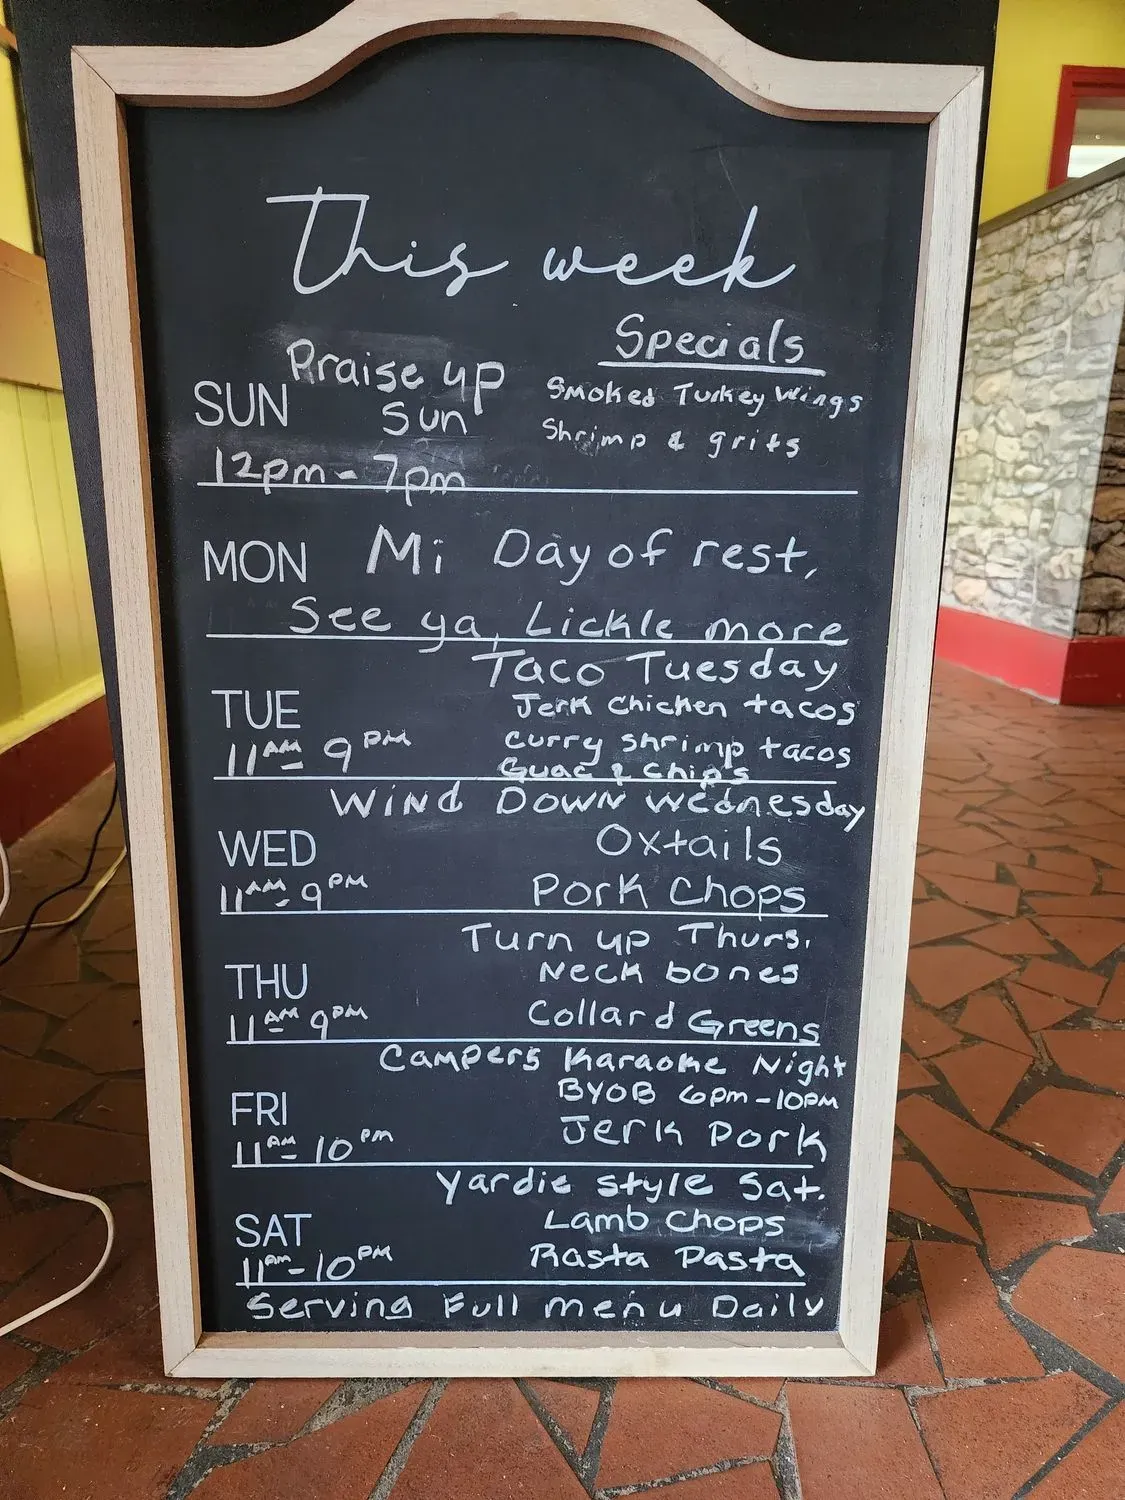 This week
Specials
Praise up
SUN Sun
Smoked Turkey Wings
Shrimp & grits
12pm - 7pm
MON Mi Day of rest,
See ya, Lickle more
Taco Tuesday
TUE Jerk chicken tacos
11AM - 9PM curry shrimp tacos
Guac & Chips
Wind Down Wednesday
WED Oxtails
11AM - 9PM Pork Chops
Turn up Thurs.
THU Neck bones
11AM - 9PM Collard Greens
Campers Karaoke Night
BYOB 6pm - 10pm
FRI Jerk Pork
11AM - 10pm
Yardie style Sat.
SAT Lamb chops
11am - 10PM Rasta Pasta
Serving Full menu Daily